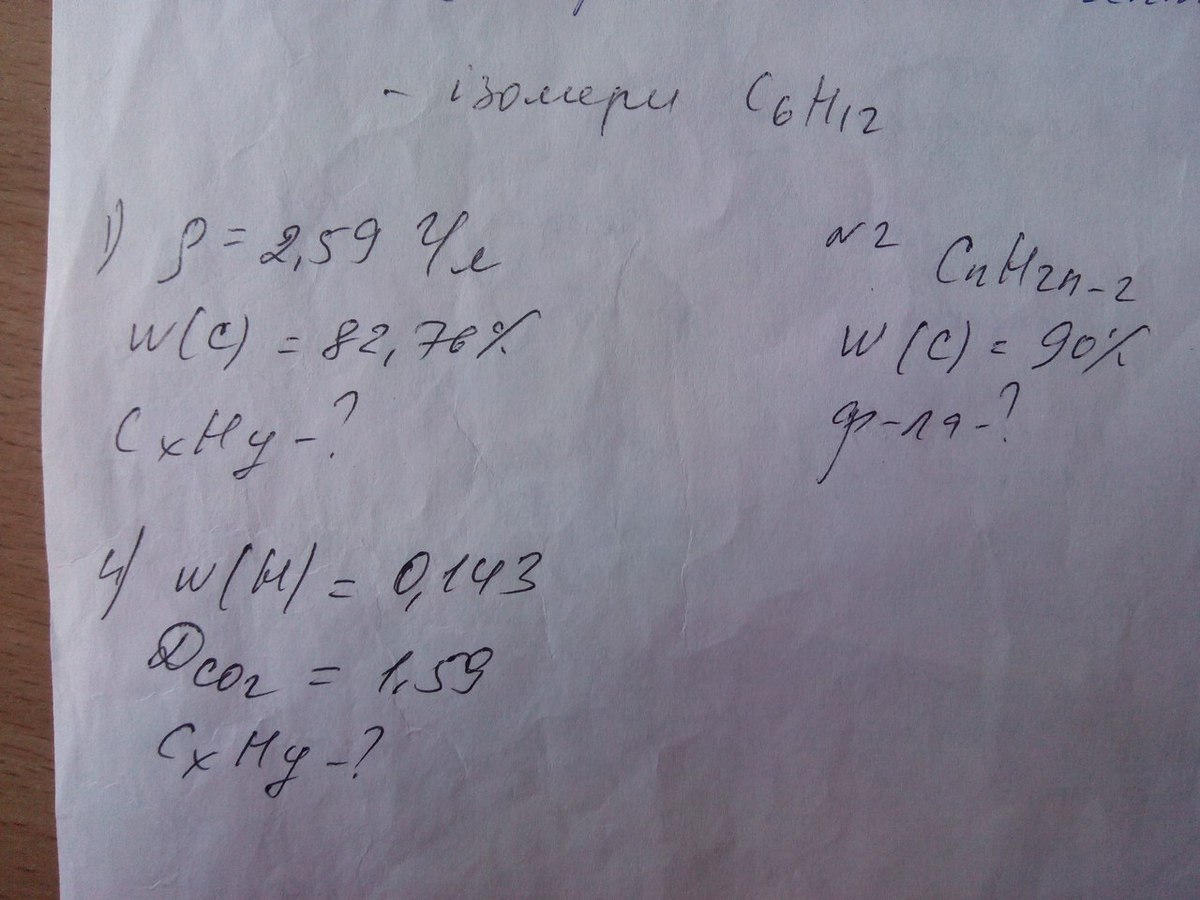 - ізомери C₆H₁₂
1) ρ = 2,59 г/л
W(C) = 82,76%
CxHy - ?
№2 CnH2n-2
W(C) = 90%
ф-ла - ?
4) W(H) = 0,143
DCO₂ = 1,59
CxHy - ?